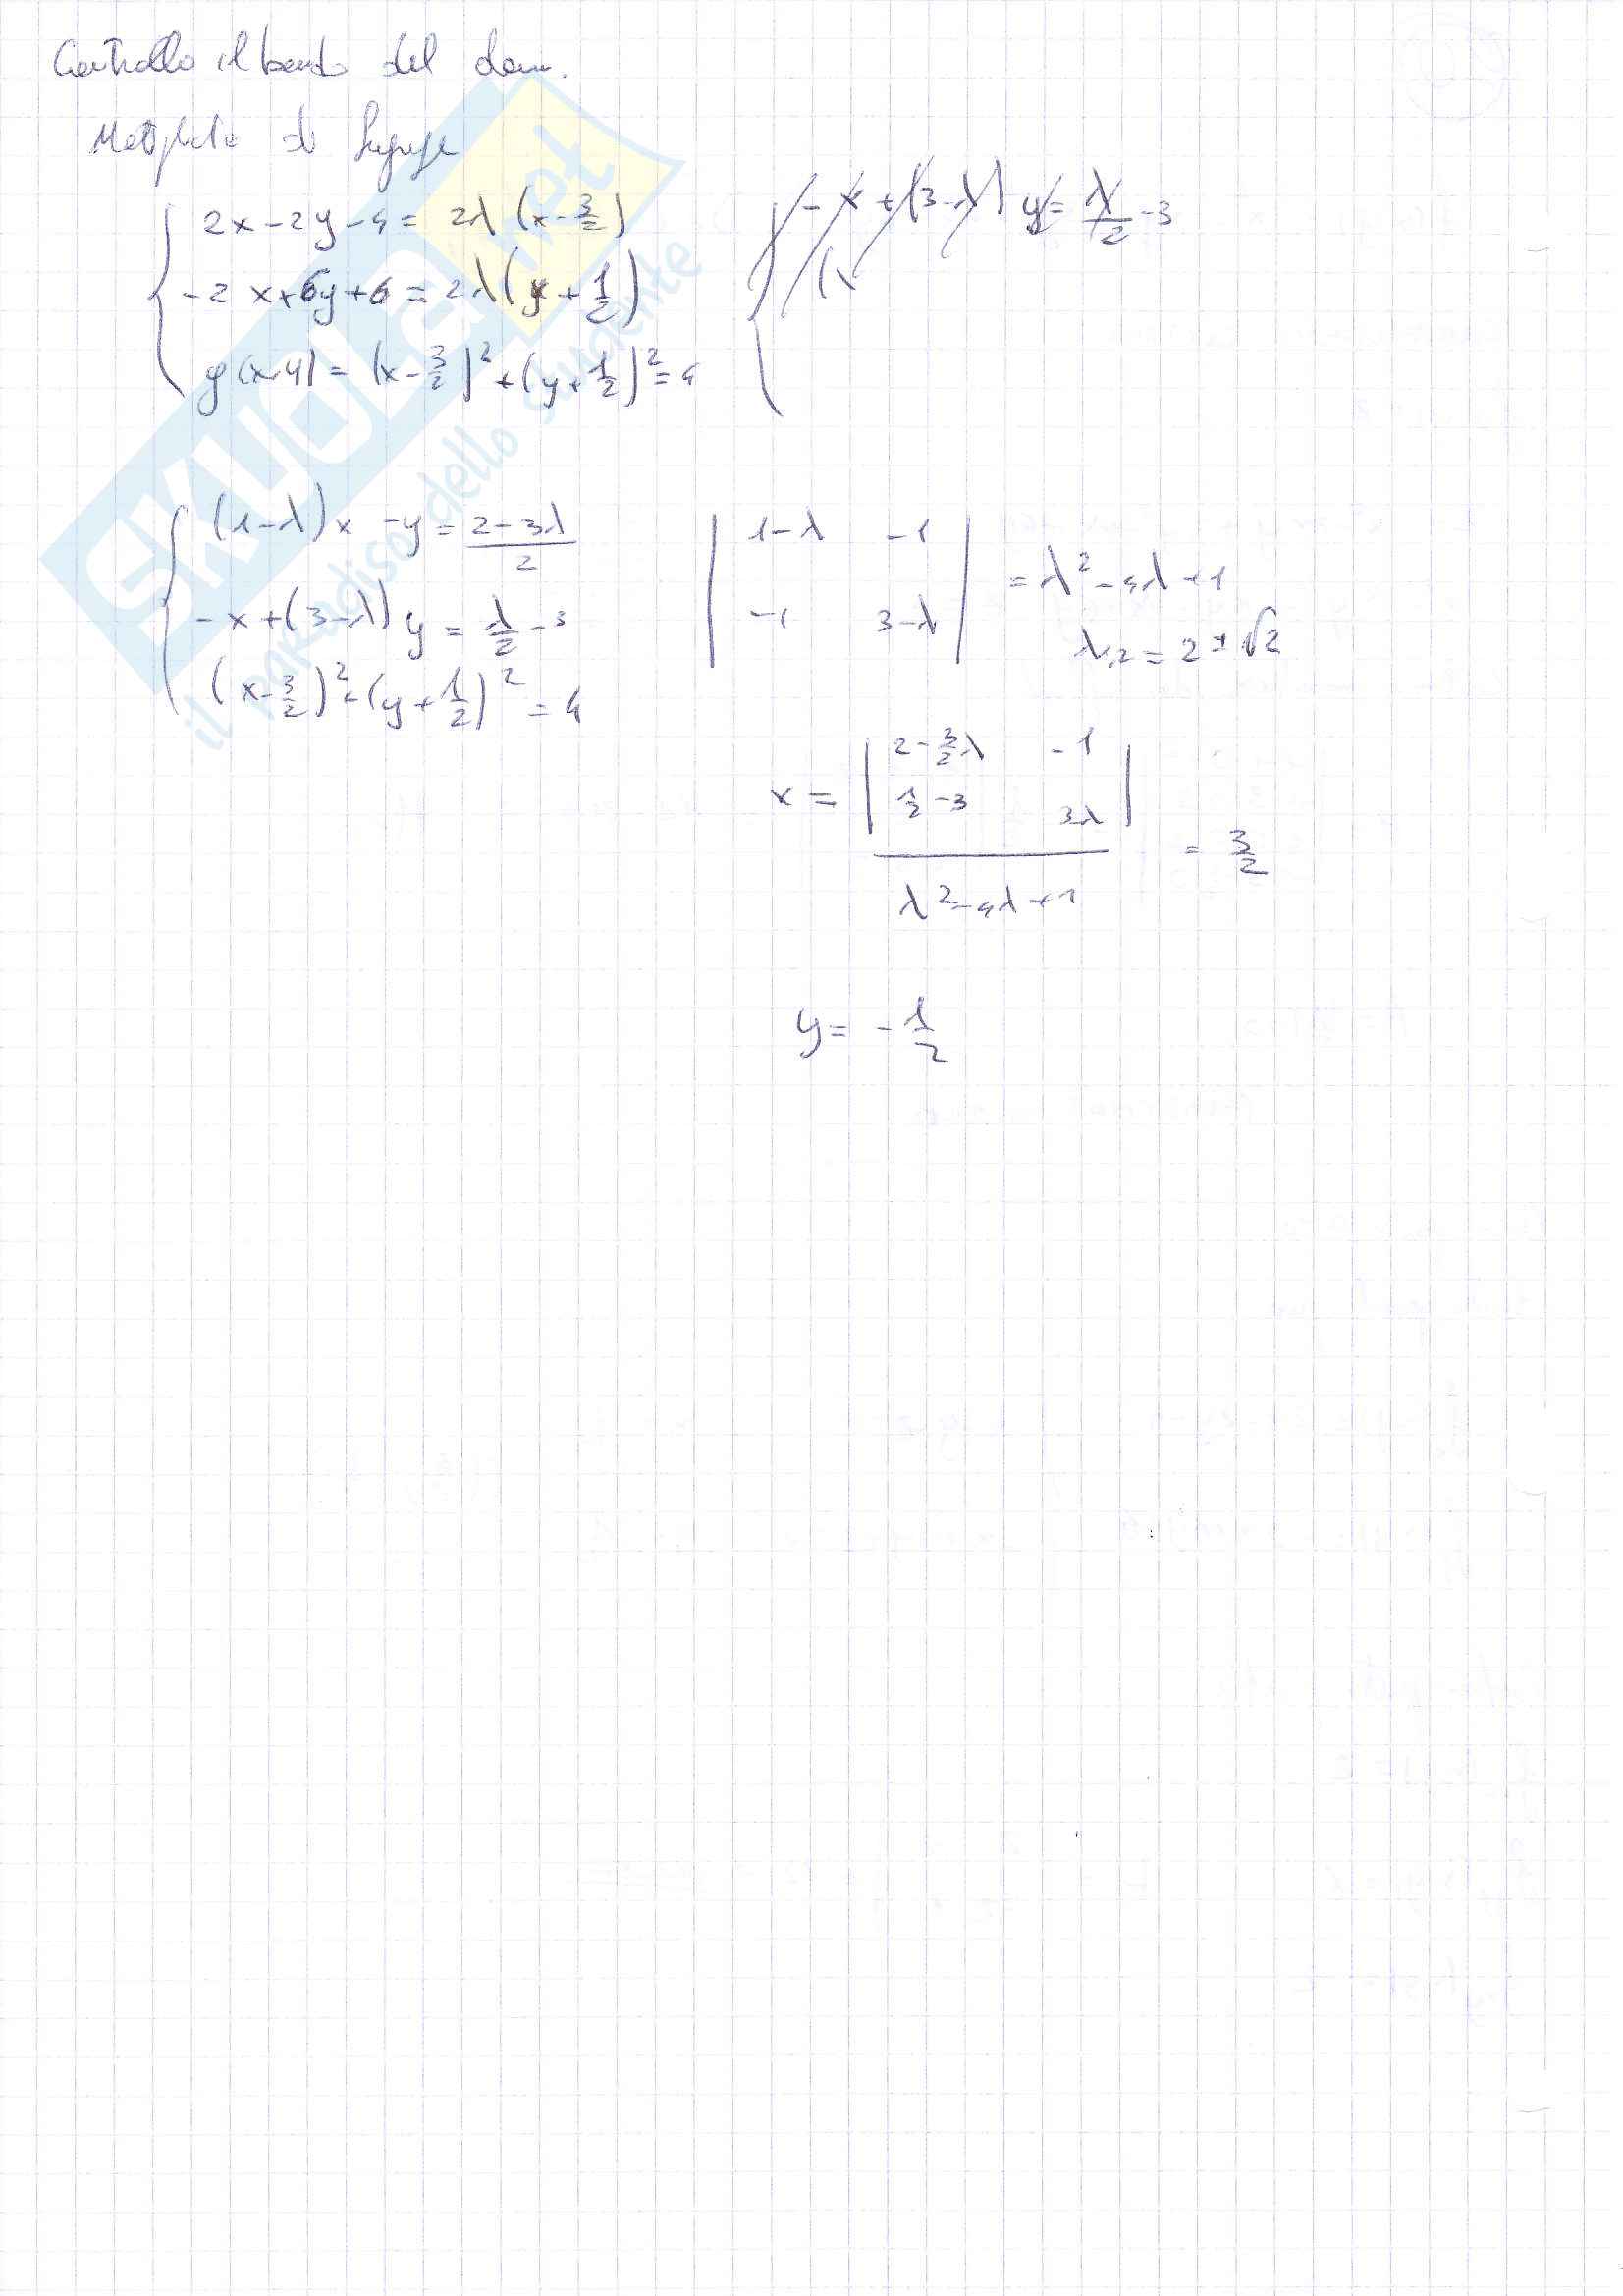 Controllo il bordo del dom.
di
2x - 2y - 4 = 2λ (x - 3/2)
- 2x + 6y + 6 = 2λ (y + 1/2)
g(x,y) = (x - 3/2)² + (y + 1/2)² = 4
- x + (3-λ) y = λ/2 - 3
(λ
(1-λ)x - y = 2-3λ/2
- x + (3-λ) y = λ/2 - 3
(x - 3/2)² + (y + 1/2)² = 4
| 1-λ -1 |
| -1 3-λ | = λ² - 4λ + 1
λ1,2 = 2 ± √2
x = | 2 - 3/2 λ -1 |
| 1/2 - 3 3λ |
λ² - 4λ + 1
= 3/2
y = - 1/2
SKUOLA.net
il paradiso dello studente